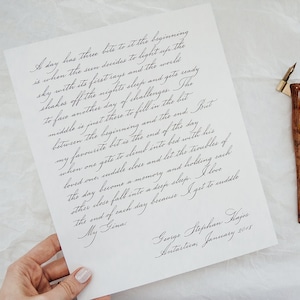 A day has three bits to it the beginning
is when the sun decides to light up the
sky with its first rays and the world
shakes off the nights sleep and gets ready
to face another day of challenges. The
middle is just there to fill in the bit
between the beginning and the end. But
my favourite bit is the end of the day
when one gets to climb into bed with his
loved one, cuddle close and let the troubles of
the day become a memory and holding each
other close fall into a deep sleep. I love
the end of each day because I get to cuddle
My Gina.
George Stephan
January 2018